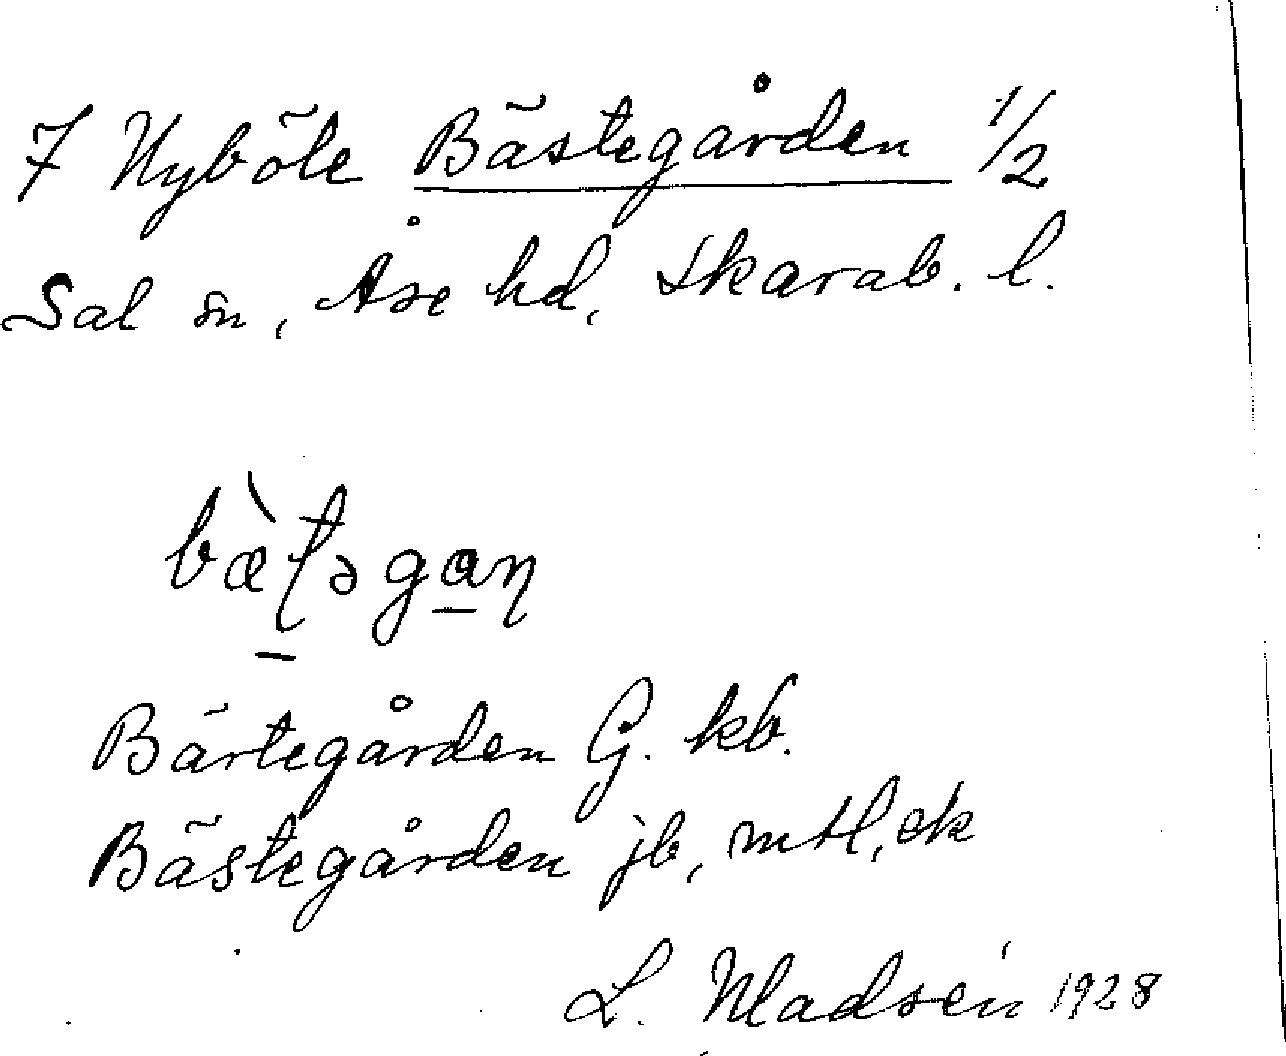 7 Nyböle Bästegården 1/2
Sal sn, Åse hd, Skarab. l.
bæ̀ʈəgaɳ
Bärtegården G. kb.
Bästegården jb, mtl, ek
L. Madsén 1928